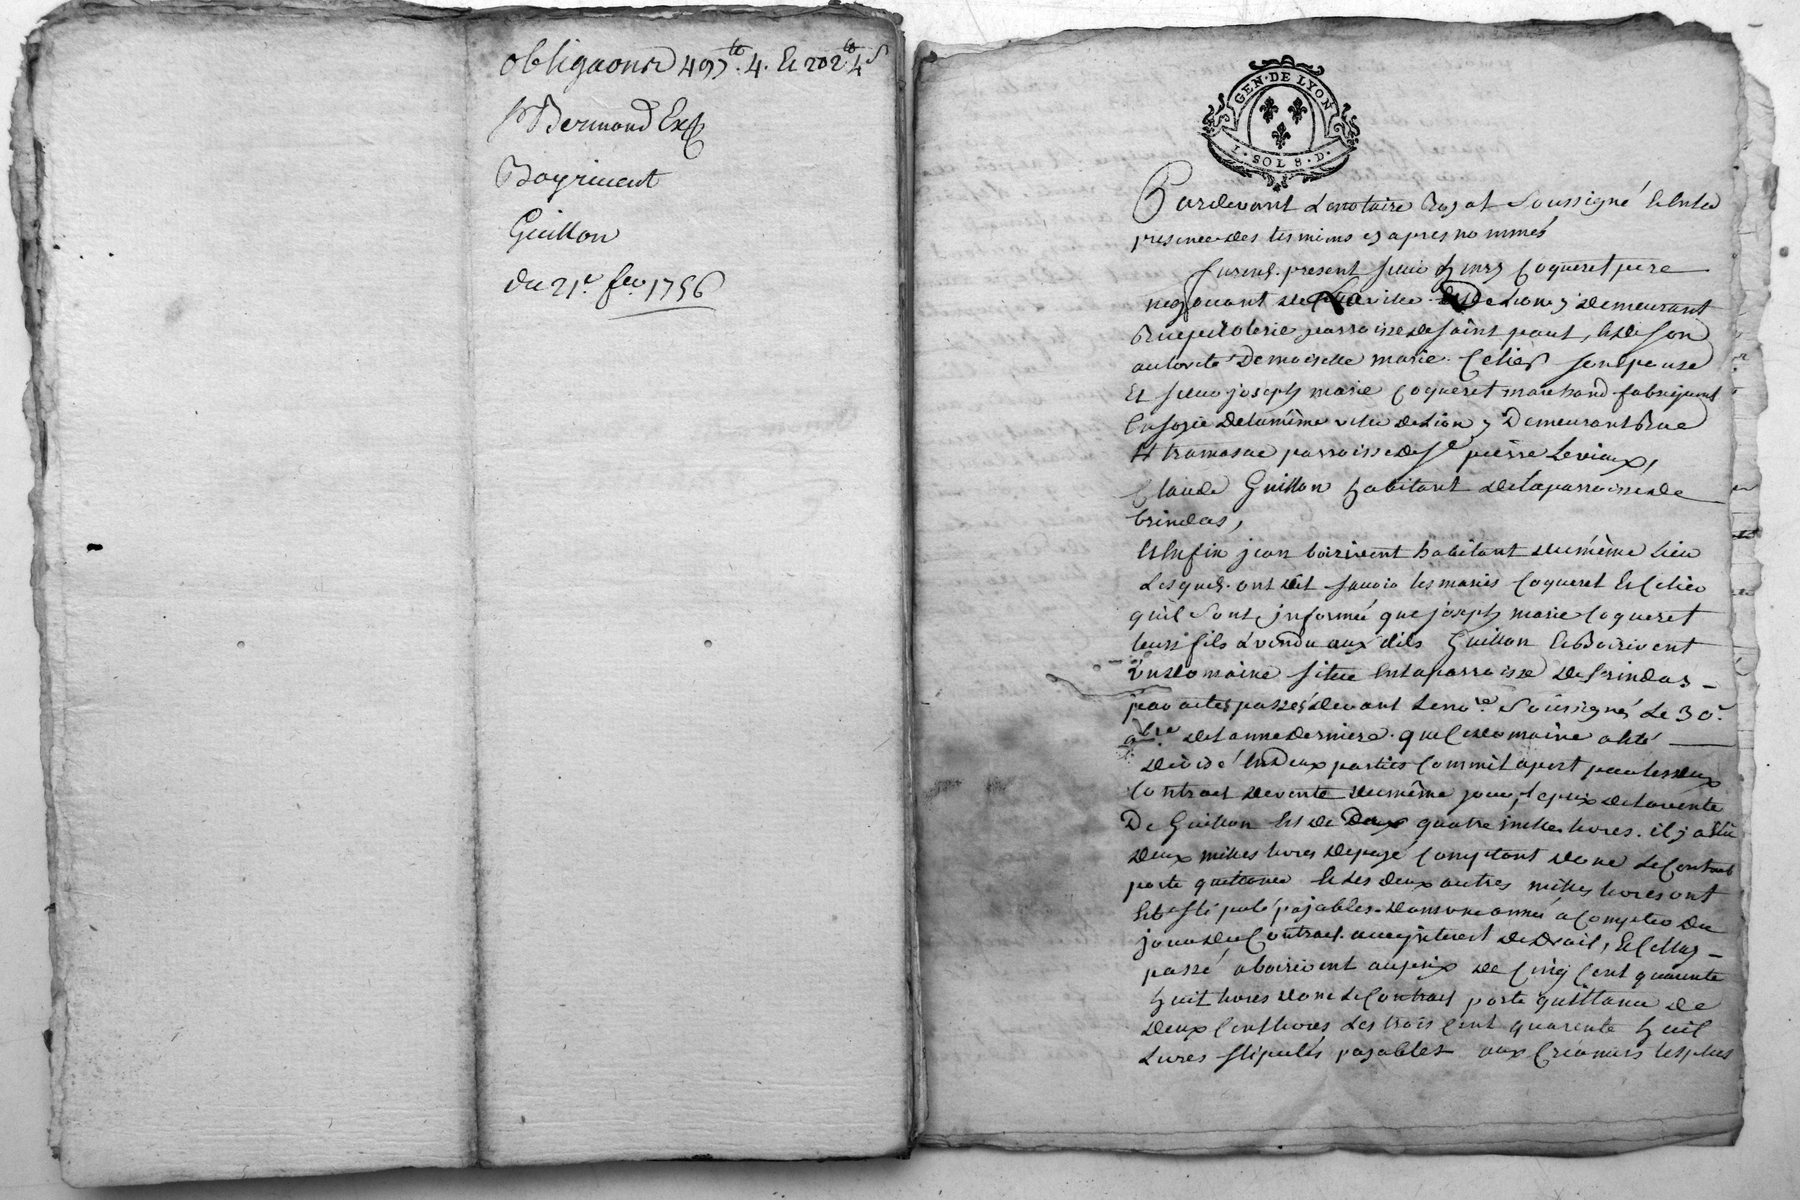 obligaons 497.lt 4. Et 202.lt 4 s
Sr Bermond
Boyrivent
Guillon
du 21e. fev. 1756
GEN. DE LYON
1. SOL 8. D.
Pardevant Le notaire Royal Soussigné Et En la
presence des temoins cy apres nommés
furent present sieur henry Coqueret pere
negociant de la ville de Lion y demeurant
Rue parroisse de saint paul, et de son
autorité Demoiselle marie son epouse
Et sieur joseph marie Coqueret marchand fabriquant
En soye de la même ville de Lion y Demeurant Rue
tramasac parroisse de St pierre Levieux,
Claude Guillon habitant de la parroisse de
brindas,
Et Enfin jean boirivent habitant du même Lieu
Lesquels ont dit savoir les mariés Coqueret Et
qu'il sont jnformé que joseph marie Coqueret
leur fils a vendu aux dits Guillon Et Boirivent
Un domaine situé En la parroisse de brindas
par actes passés devant Le nore. Soussigné Le 30e.
de l'année derniere. que Ce domaine a Eté
divisé En Deux parties Comm'il apert par les deux
Contract de vente du même jour, le prix de la vente
De Guillon Est de quatre mille livres. il y a Eu
deux milles livres de payé Comptant dont Le Contract
porte quittance Et Les deux autres milles livres ont
Eté stipulé payables dans une année a Compter du
jour du Contract. avec jnterest de Droit, Et Celluy
passé a boirivent au prix de Cinq Cent quarente
huit livres dont Le Contract porte quittance de
deux Cent livres Les trois Cent quarente huit
Livres stipulés payables aux Créanciers les plus